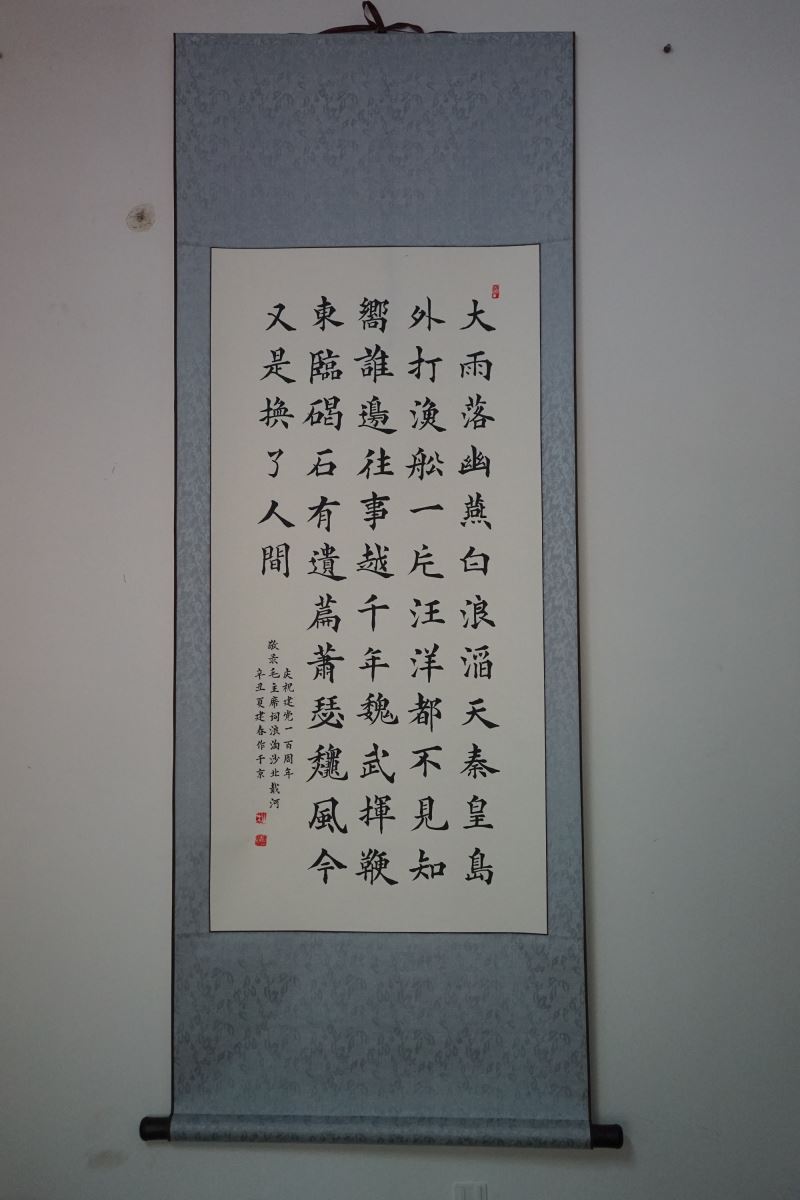 大雨落幽燕白浪滔天秦皇島
外打漁舩一片汪洋都不見知
嚮誰邊往事越千年魏武揮鞭
東臨碣石有遺篇蕭瑟龝風今
又是換了人間
庆祝建党一百周年
敬录毛主席词浪淘沙北戴河
辛丑夏建春作于京